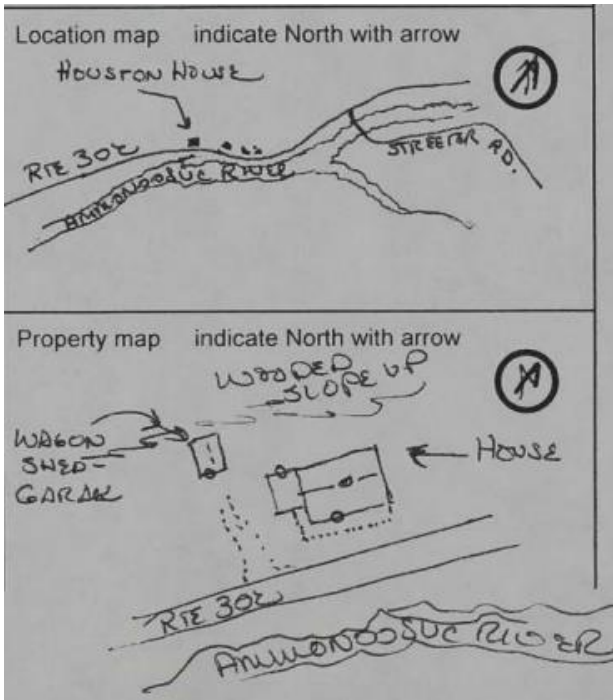 Location map indicate North with arrow
HOUSTON HOUSE
RTE 302
AMMONOOSUC RIVER
STREETER RD.
Property map indicate North with arrow
WOODED
SLOPE UP
WAGON
SHED-
GARAGE
HOUSE
RTE 302
AMMONOOSUC RIVER